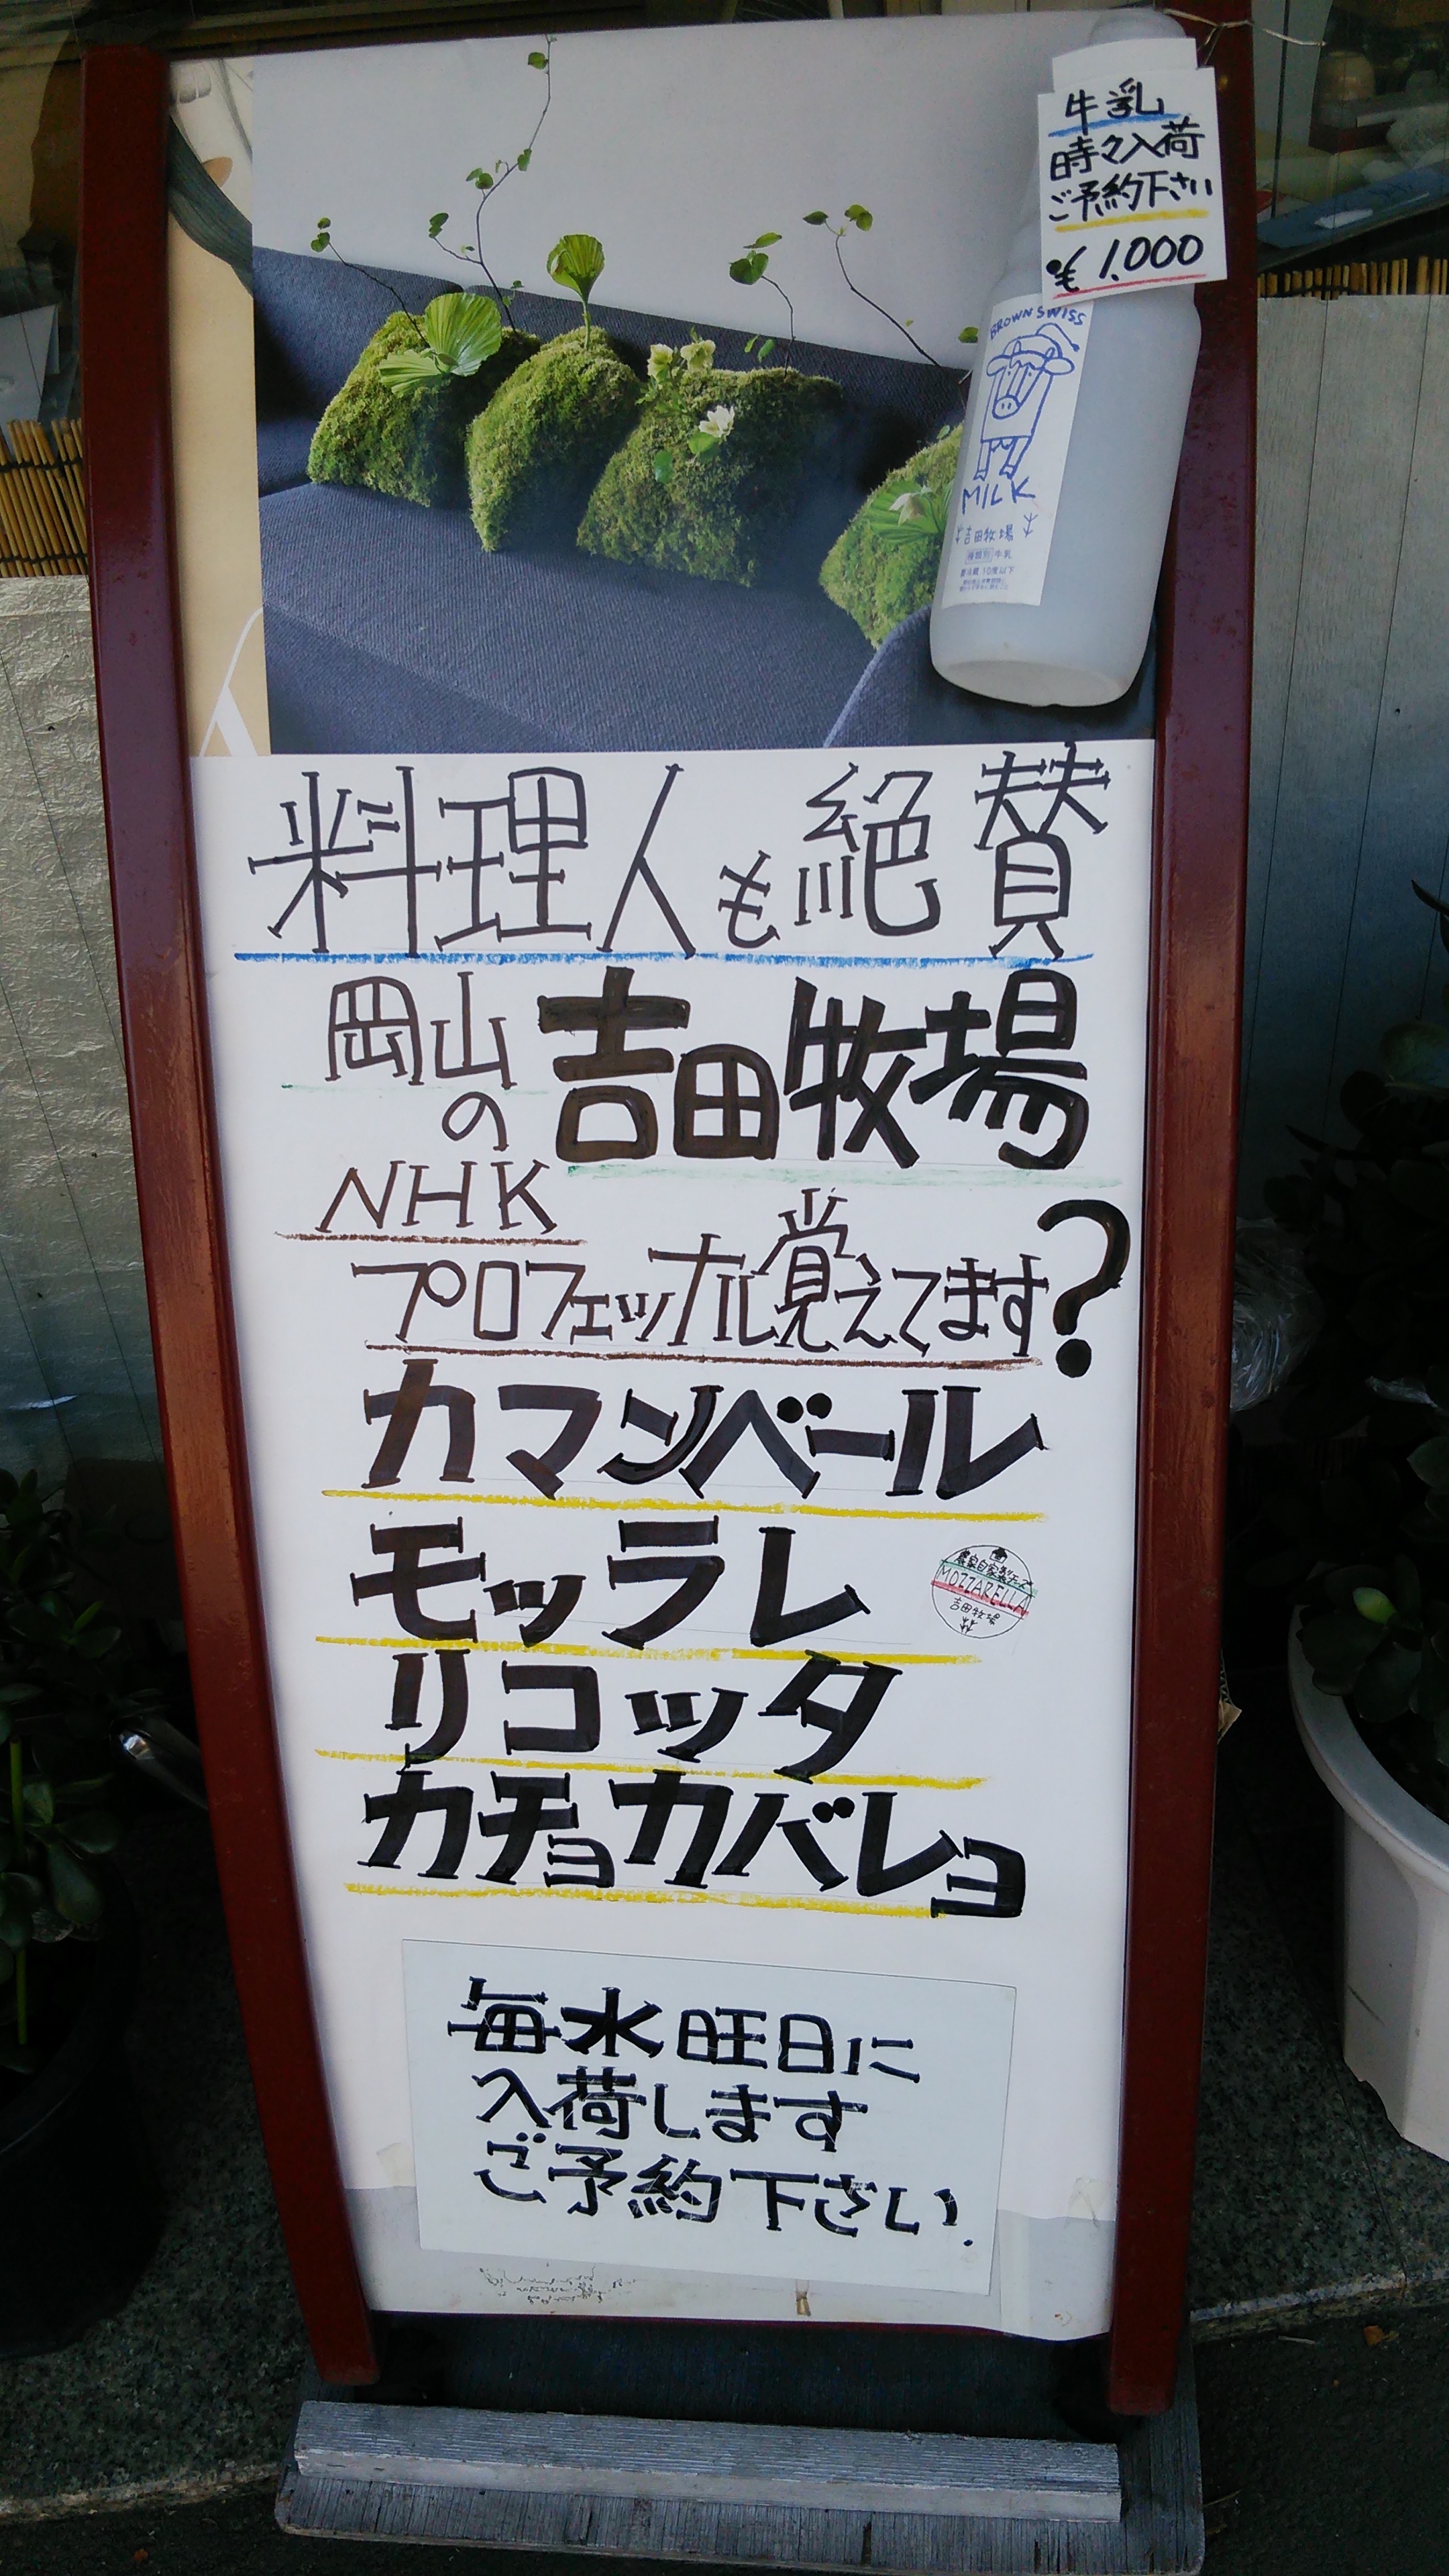 牛乳
時々入荷
ご予約下さい
¥1,000
BROWN SWISS
MILK
吉田牧場
種類別 牛乳
要冷蔵 10度以下
料理人も絶賛
岡山の吉田牧場
NHK
プロフェッナル覚えてます?
カマンベール
モッラレ
農家自家製チーズ
MOZZARELLA
吉田牧場
リコッタ
カチョカバレョ
毎水旺日に
入荷します
ご予約下さい.